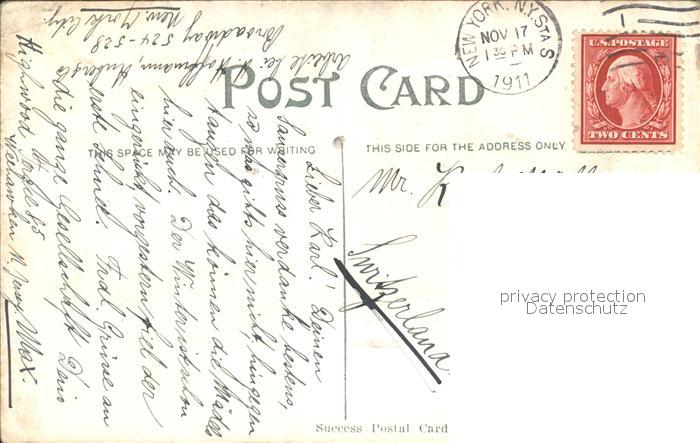 POST CARD
THIS SPACE MAY BE USED FOR WRITING
THIS SIDE FOR THE ADDRESS ONLY
NEW YORK, N.Y. STA S
NOV 17
1 30 PM
1911
U.S. POSTAGE
TWO CENTS
Mr. K
Switzerland
privacy protection
Datenschutz
Success Postal Card
Lieber Karl! Deinen
verdanke bestens,
so was gibts hier nicht, hingegen
tanzen das können die Mädels
hier auch. Der Winter ist schon
eingerückt vorgestern fiel der
erste Schnee. Frdl. Grüsse an
die ganze Gesellschaft Dein
Max.
Highwood
Weehawken N. Jersey
Arbeite bei Hoffmann,
Broadway 524-528
New-York City.